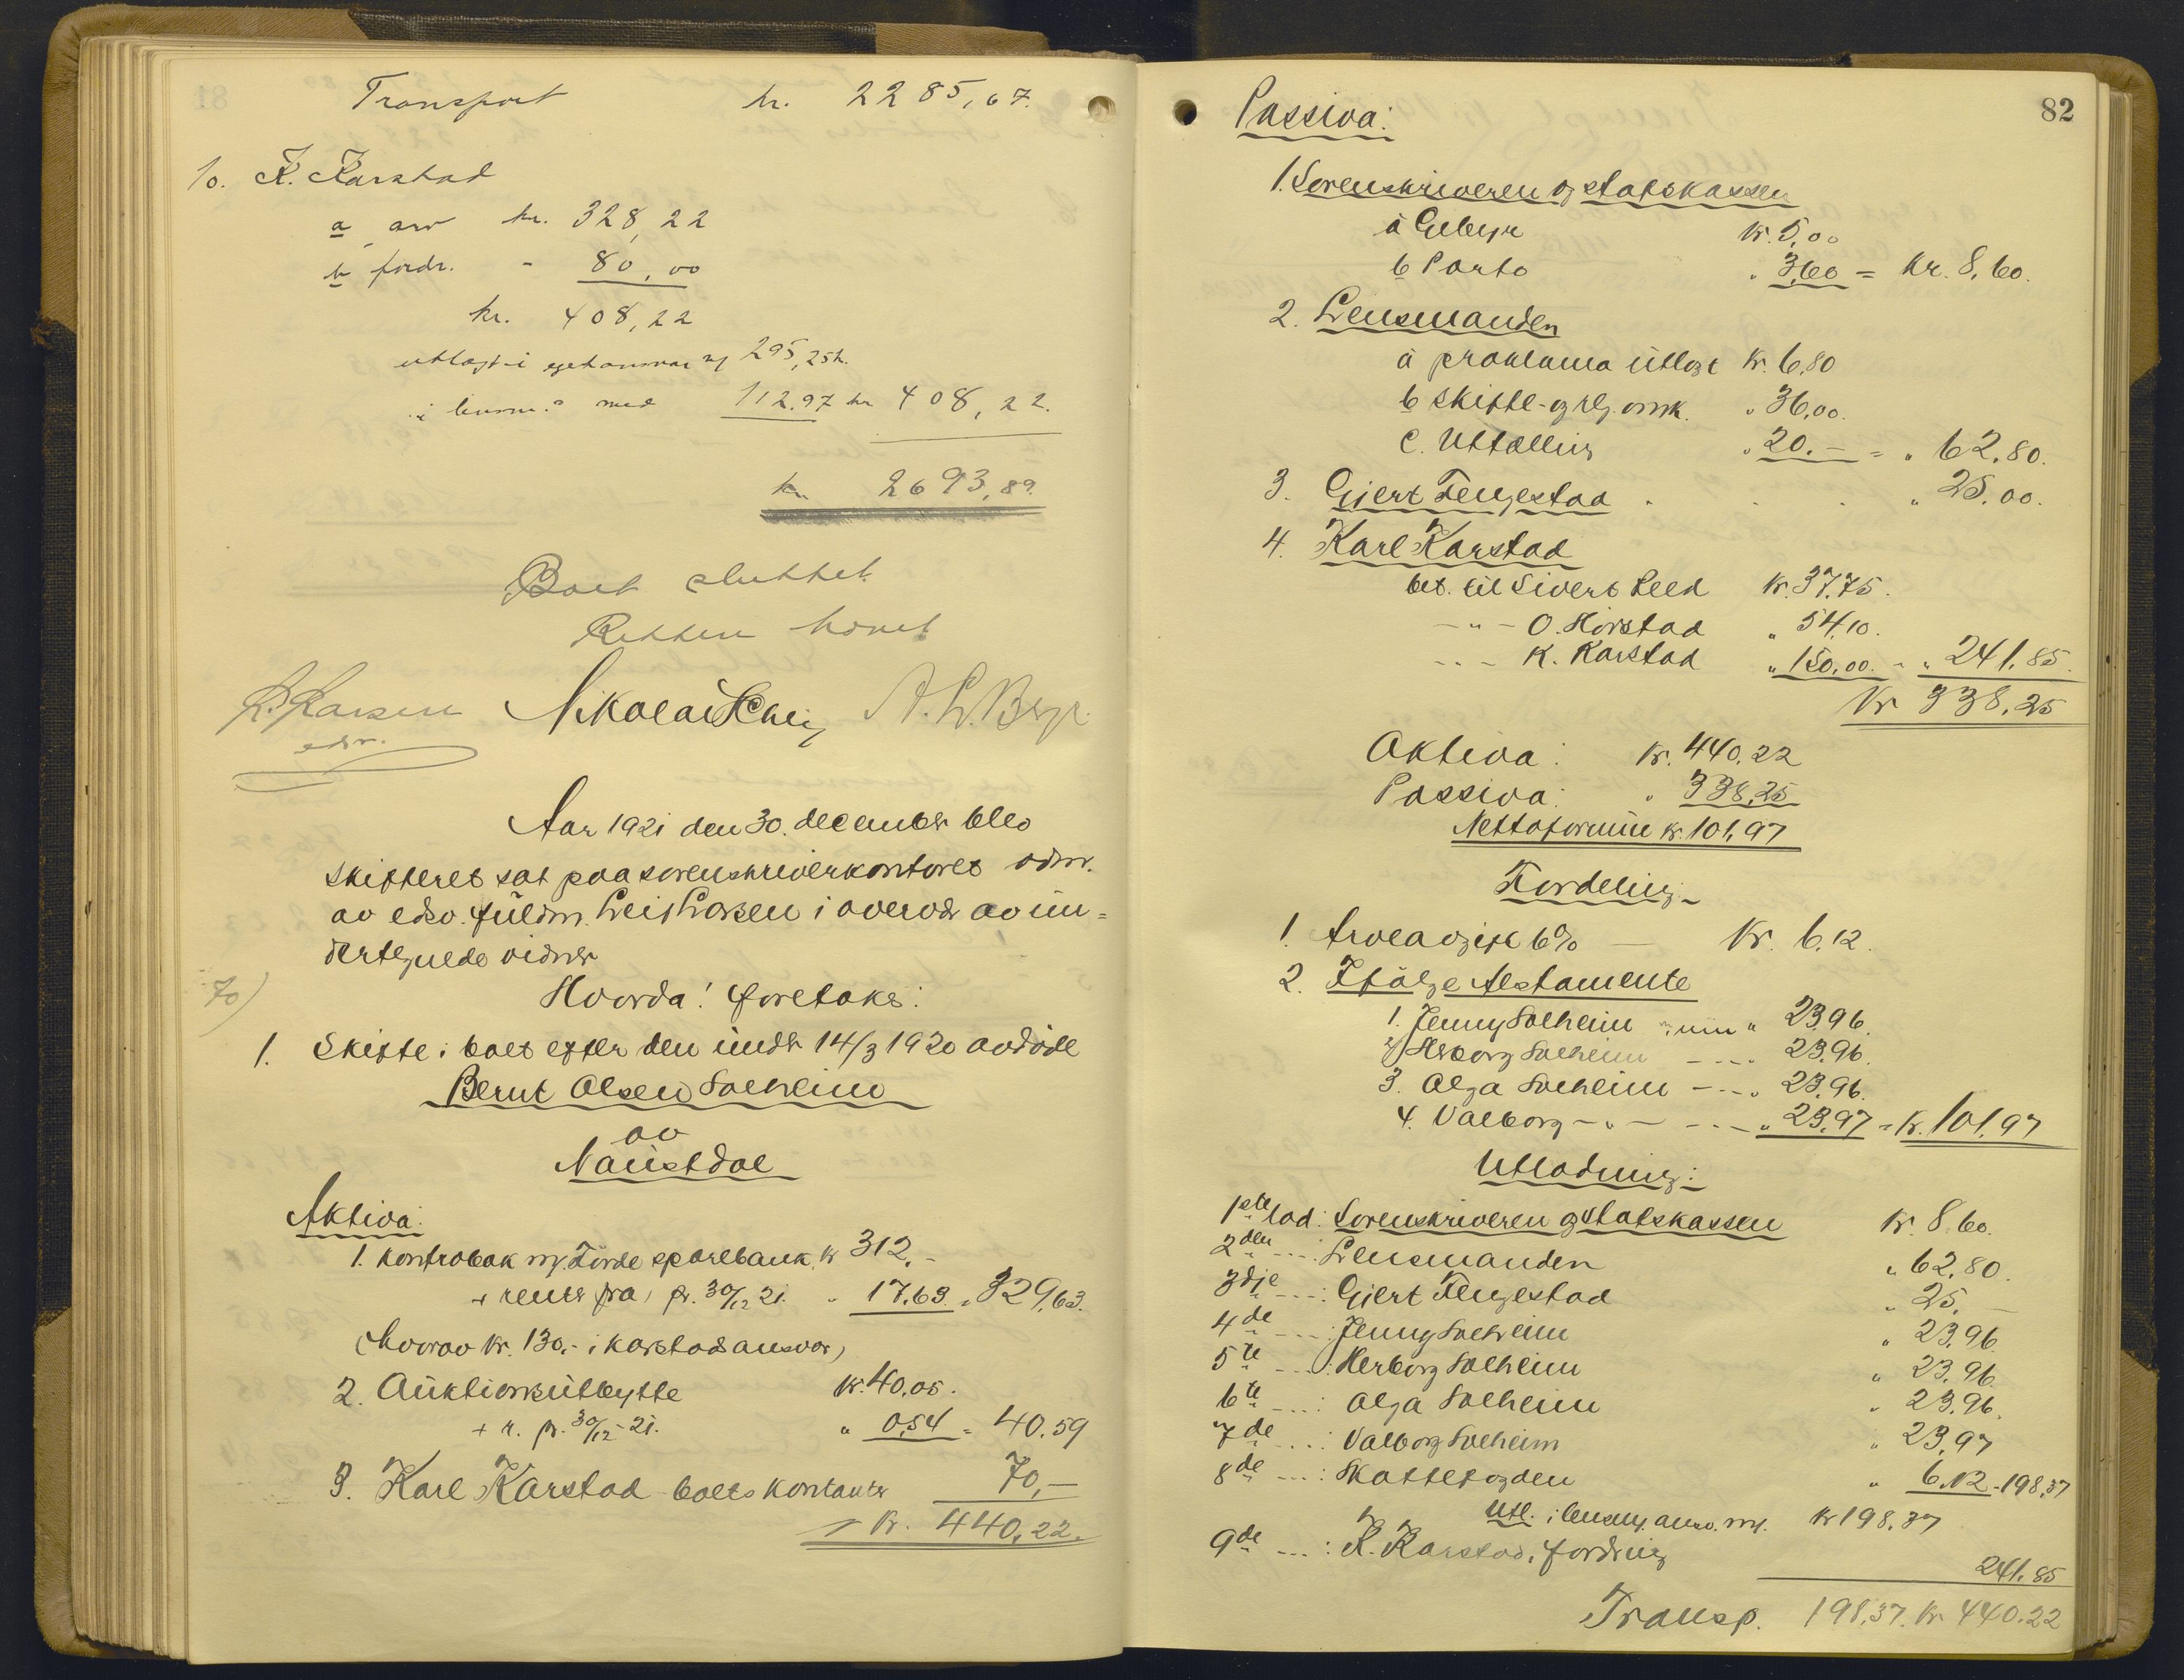 Transport kr. 2285,67.
10. K. Karstad
a arv kr. 328,22
b fordr. - 80,00
kr. 408,22
utlagt i eget ansvar m/ 295,25 k.
i lensm.s med 112.97 kr 408,22.
kr. 2693,89.
Boet sluttet.
Retten hævet
L. Larsen Nikolai A. L.
edsv.
Aar 1921 den 30. december blev
skifteret sat paa sorenskriverkontoret adm.
av edsv. fuldm. Leif Larsen i overvær av un=
dertegnede vidner
Hvorda! foretoks:
70)
1. Skifte i boet efter den under 14/3 1920 avdöde
Bernt Olsen Solheim
av
Naustdal
Aktiva:
1. Kontrabok m/ Förde sparebank, kr 312.-
+ renter fra, pr. 30/12 21. " 17,63. " 329,63.
(hvorav kr. 130.- i Karstads ansvar)
2. Auktionsutbytte kr. 40,05.
+ r. pr. 30/12-21. " 0,54 = 40.59
3. Karl Karstad boets kontanter 70,-
Kr. 440,22.
82
Passiva:
1. Sorenskriveren og statskassen
a Gebyr kr. 5,00
b Porto " 3,60 = kr. 8,60.
2. Lensmanden
a proklama utlagt kr. 6,80
b Skifte- og reg. omk. " 36,00.
c. Utlodling " 20.- = " 62,80.
3. Gjert Fengestad . . . " 25,00.
4. Karl Karstad
bet. til Sivert Leed kr. 37,75.
- " - O. Horstad " 54,10.
- " - K. Karstad " 150,00. - " 241,85.
Kr 338,25
Aktiva: kr. 440,22
Passiva: " 338,25
Nettoformue kr. 101,97
Fordeling
1. Arveavgift 6% — Kr. 6,12.
2. Ifölge testamente
1. Jenny Solheim " 23,96.
2/ Herborg Solheim - - - " 23,96.
3. Olga Solheim - - - " 23,96.
4. Valborg - " - - - - " 23,97 = kr. 101,97
Utlodning:
1ste lod: Sorenskriveren og statskassen kr. 8,60.
2den - - -: Lensmanden " 62,80.
3dje - - -: Gjert Fengestad " 25,-
4de - - -: Jenny Solheim " 23,96
5te - - -: Herborg Solheim " 23,96
6te - - -: Olga Solheim " 23,96.
7de - - -: Valborg Solheim " 23,97
8de - - -: Skattefogden " 6,12 - 198,37
Utl. i lensm. ansv. m/. kr 198,37
9de - - -: K. Karstad, fordring 241,85
Transp. 198,37. kr 440,22